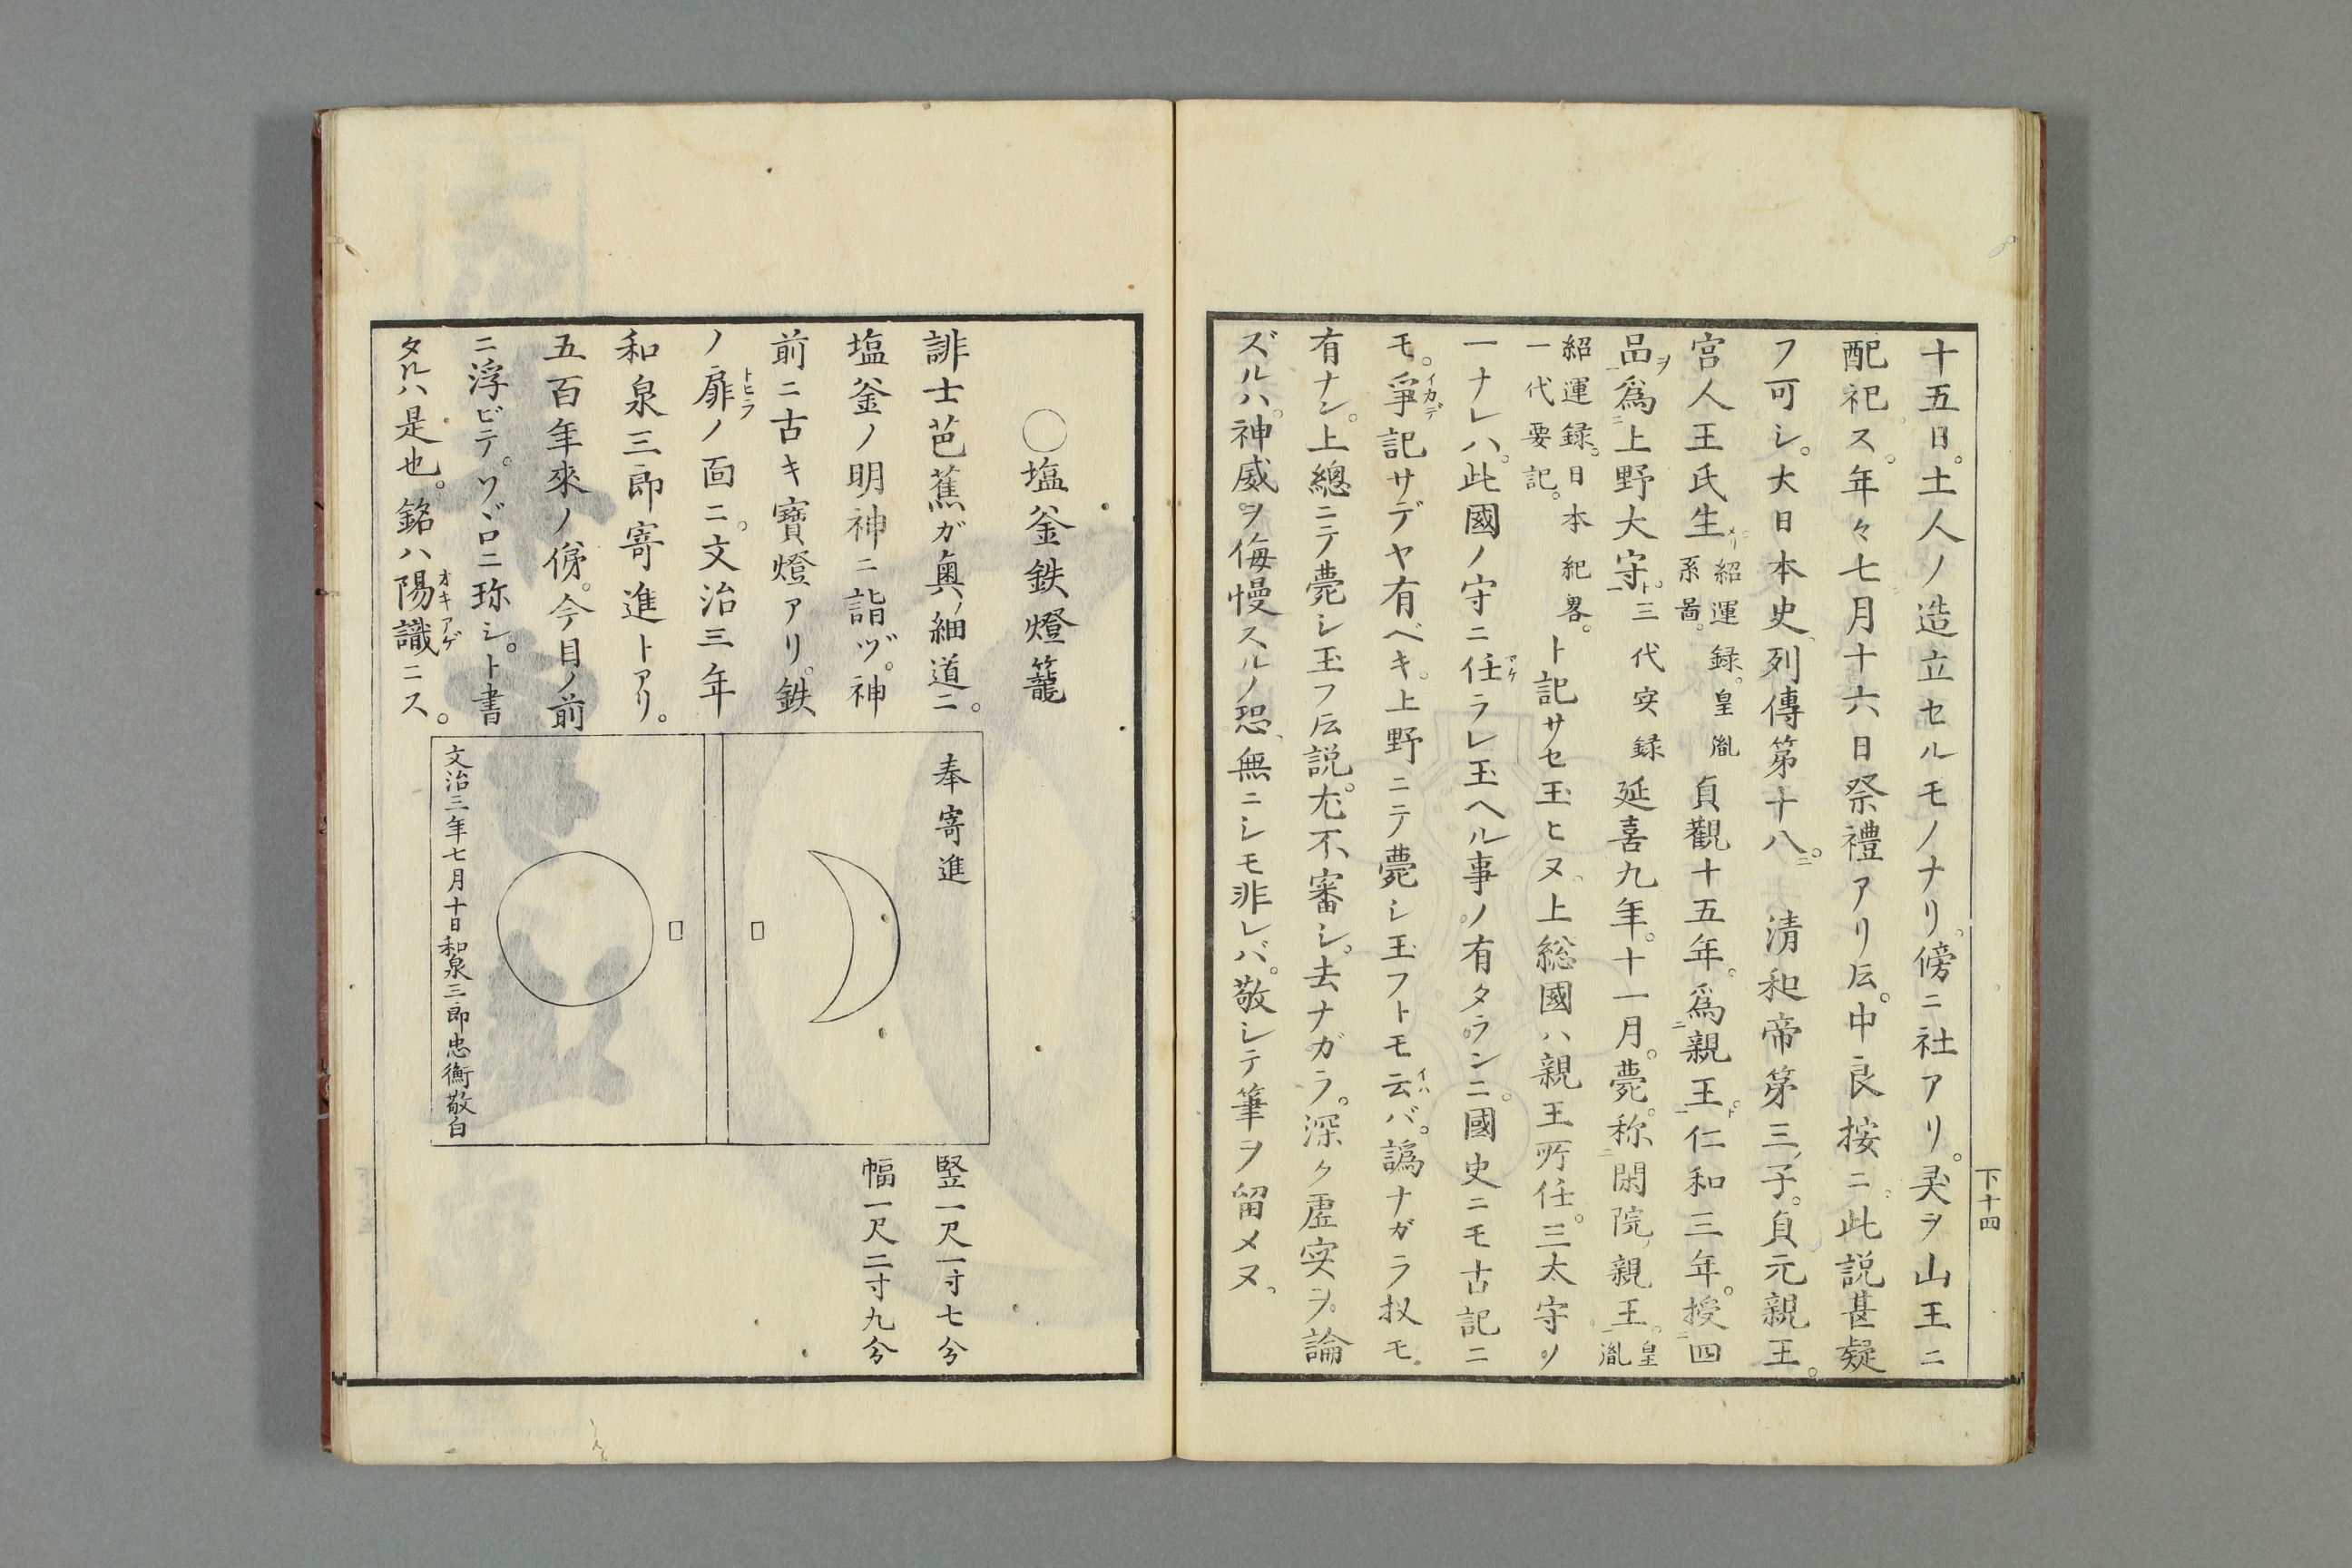 下十四
十五日。土人ノ造立セルモノナリ。傍ニ社アリ。灵ヲ山王ニ
配祀ス。年々七月十六日祭禮アリ𪜈。中良按ニ。此説甚疑
フ可シ。大日本史、列傳第十八。ニ 清和帝第三ノ子。貞元親王。
宮人王氏生メリ。紹運録。皇胤系啚。貞觀十五年。爲二親王一ト。仁和三年。授二四
品一ヲ爲二上野大守一ト。三代実録 延喜九年。十一月。薨。称二閑院ノ親王一。皇胤
紹運録。日本紀畧。一代要記。ト記サセ玉ヒヌ、上総國ハ親王所任。三太守ノ
一ナレハ。此國ノ守ニ任マケラレ玉ヘル事ノ。有タランニ。國史ニモ古記ニ
モ。爭イカデ記サデヤ有ベキ。上野ニテ薨シ玉フトモ云イハバ。譌ナガラ扠モ。
有ナン。上總ニテ薨シ玉フ𪜈説。尤不審シ。去ナガラ。深ク虚実ヲ。論
ズルハ。神威ヲ侮慢スルノ恐、無ニシモ非レバ。敬シテ筆ヲ留メヌ。
〇塩釜鉄燈籠
誹士芭蕉ガ奥ノ細道ニ。
塩釜ノ明神ニ詣ヅ。神
前ニ古キ寶燈アリ。鉄
ノ扉トヒラノ面ニ。文治三年
和泉三郎寄進トアリ。
五百年來ノ俤。今目ノ前
ニ浮ビテ。ソゞロニ珎シ。ト書
タルハ是也。銘ハ陽識オキアゲニス。
奉寄進
文治三年七月十日和泉三郎忠衡敬白
竪一尺一寸七分
幅一尺二寸九分